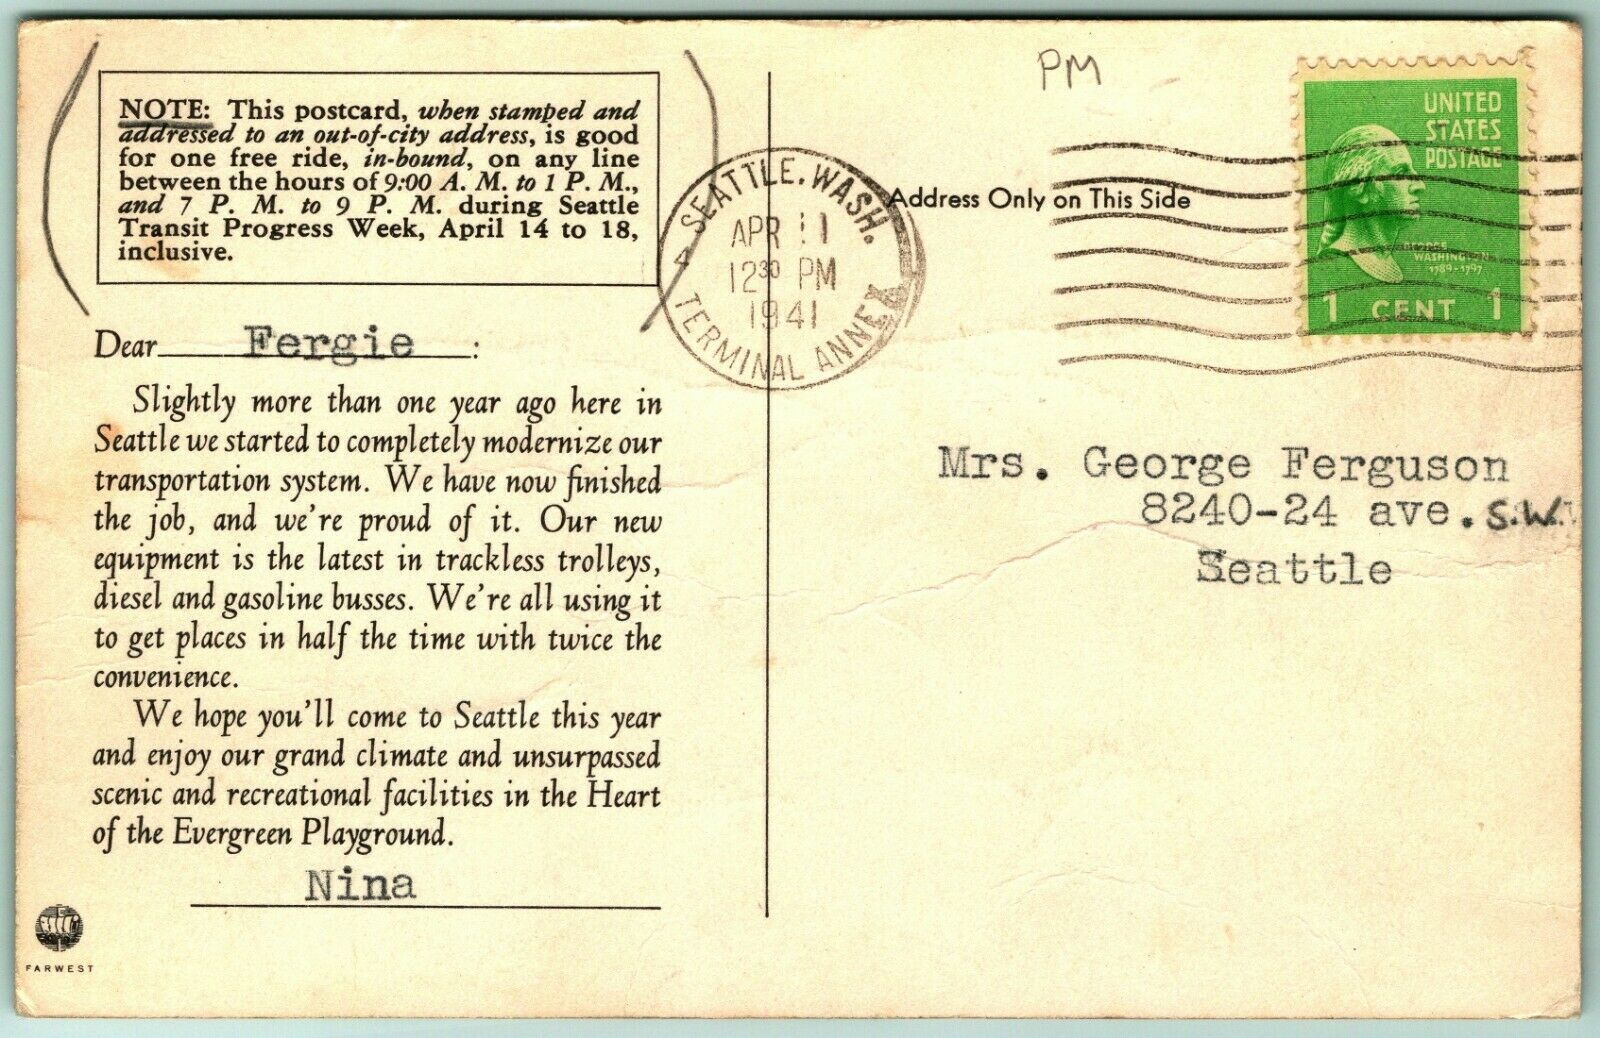 NOTE: This postcard, when stamped and
addressed to an out-of-city address, is good
for one free ride, in-bound, on any line
between the hours of 9:00 A. M. to 1 P. M.,
and 7 P. M. to 9 P. M. during Seattle
Transit Progress Week, April 14 to 18,
inclusive.
Dear Fergie:
Slightly more than one year ago here in
Seattle we started to completely modernize our
transportation system. We have now finished
the job, and we're proud of it. Our new
equipment is the latest in trackless trolleys,
diesel and gasoline busses. We're all using it
to get places in half the time with twice the
convenience.
We hope you'll come to Seattle this year
and enjoy our grand climate and unsurpassed
scenic and recreational facilities in the Heart
of the Evergreen Playground.
Nina
FARWEST
SEATTLE, WASH.
APR 11
12 30 PM
1941
4
TERMINAL ANNEX
PM
UNITED
STATES
POSTAGE
WASHINGTON
1789-1797
1 CENT 1
Address Only on This Side
Mrs. George Ferguson
8240-24 ave. S.W.
Seattle